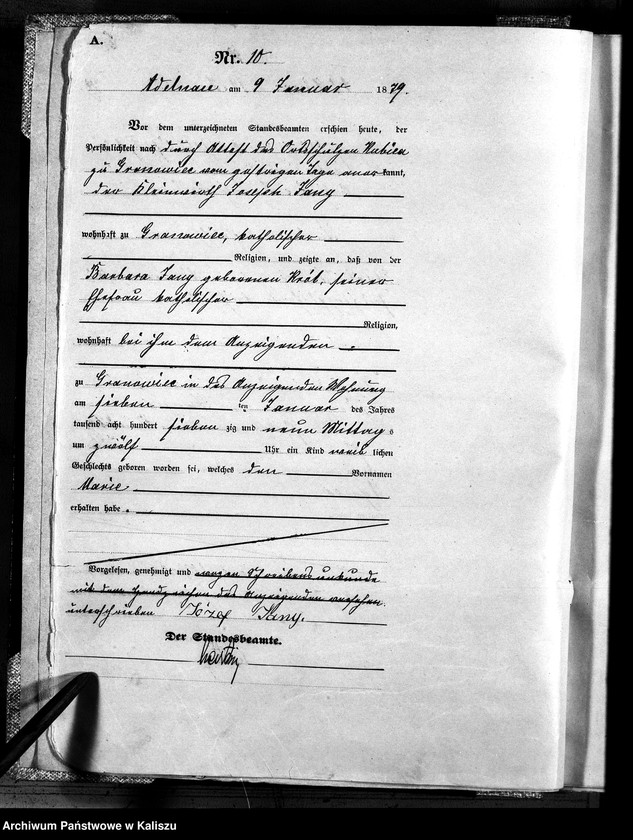 A.
Nr. 10.
Adelnau am 9 Januar 1879.
Vor dem unterzeichneten Standesbeamten erschien heute, der
Persönlichkeit nach durch Attest des Ortsschulzen Kubica
zu Granowiec vom gestrigen Tage aner kannt,
der Kleinwirth Joseph Jany
wohnhaft zu Granowiec, katholischer
Religion, und zeigte an, daß von der
Barbara Jany geborenen Król, seiner
Ehefrau katholischer
Religion,
wohnhaft bei ihm dem Anzeigenden
zu Granowiec in des Anzeigenden Wohnung
am sieben ten Januar des Jahres
tausend acht hundert sieben zig und neun Mittag s
um zwölf Uhr ein Kind weib lichen
Geschlechts geboren worden sei, welches den Vornamen
Marie
erhalten habe.
Vorgelesen, genehmigt und wegen Schreibensunkunde
mit dem Handzeichen des Anzeigenden versehen.
unterschrieben Józef Jany.
Der Standesbeamte.
Archiwum Państwowe w Kaliszu